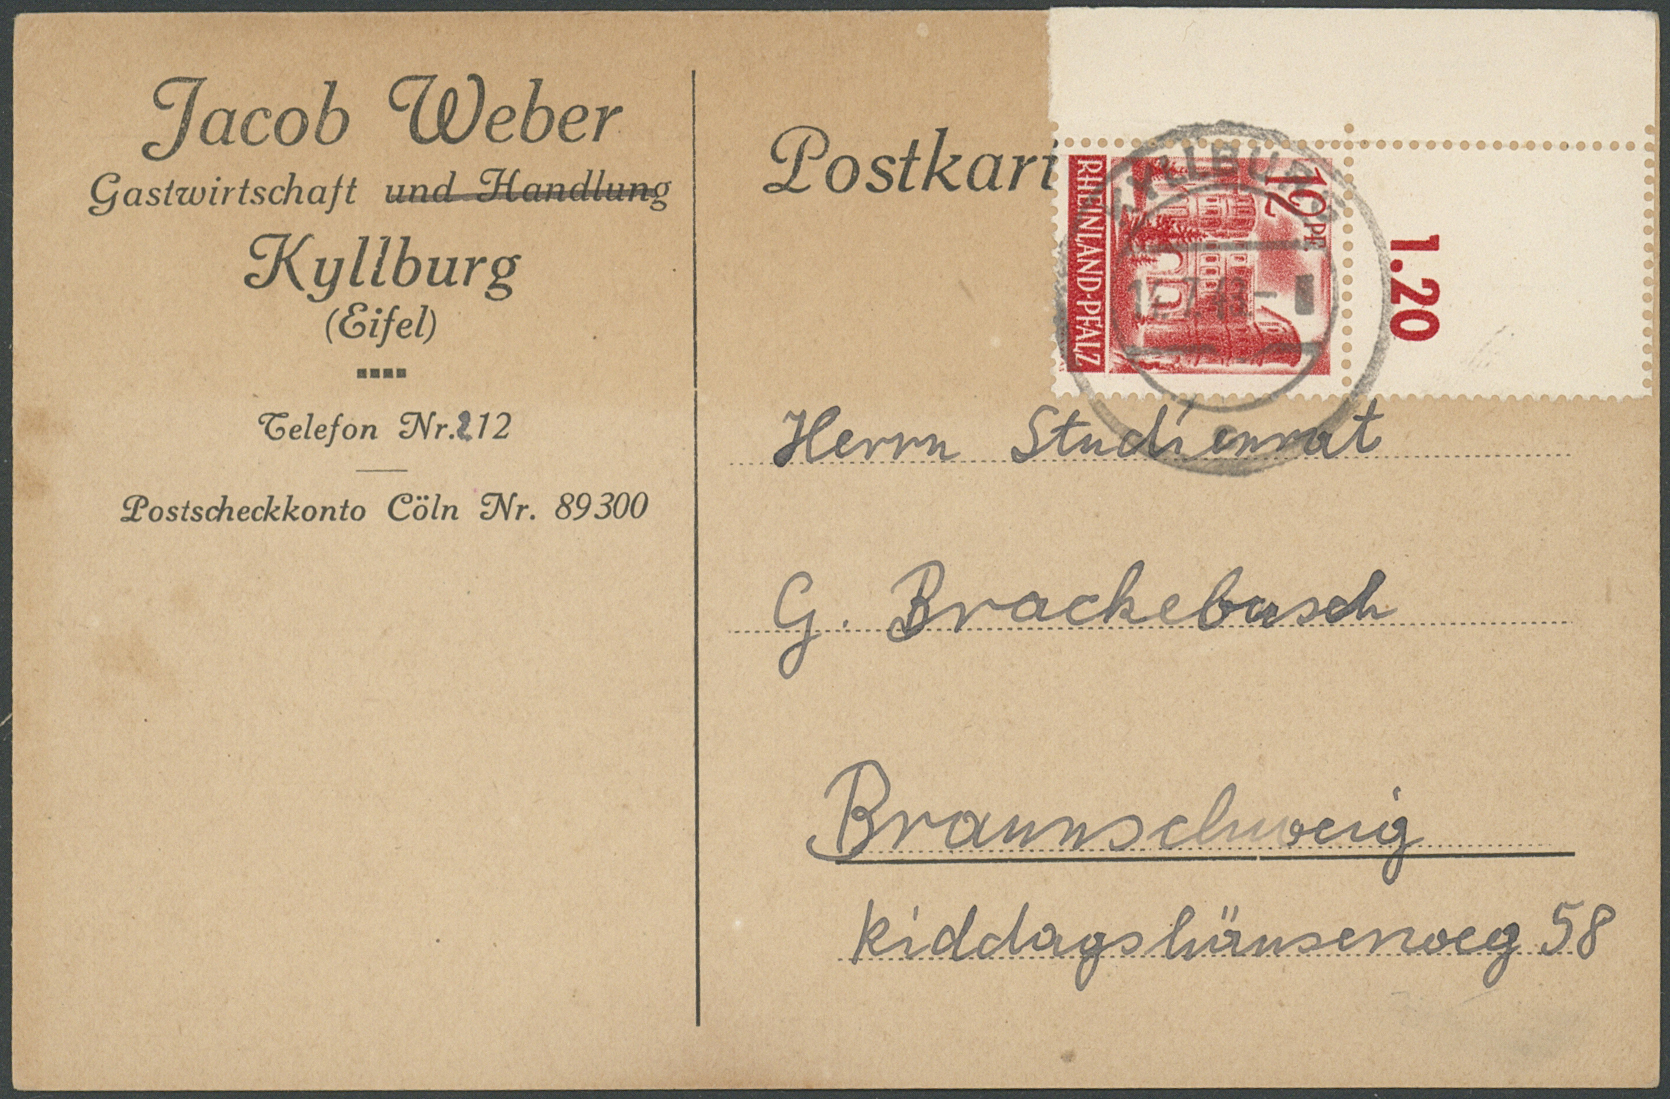 Jacob Weber
Gastwirtschaft und Handlung
Kyllburg
(Eifel)
Telefon Nr. 212
Postscheckkonto Cöln Nr. 89300
Postkart
12 PF
RHEINLAND-PFALZ
KYLLBURG
1.20
Herrn Studienrat
G. Brackebusch
Braunschweig
Kiddagshäuserweg 58